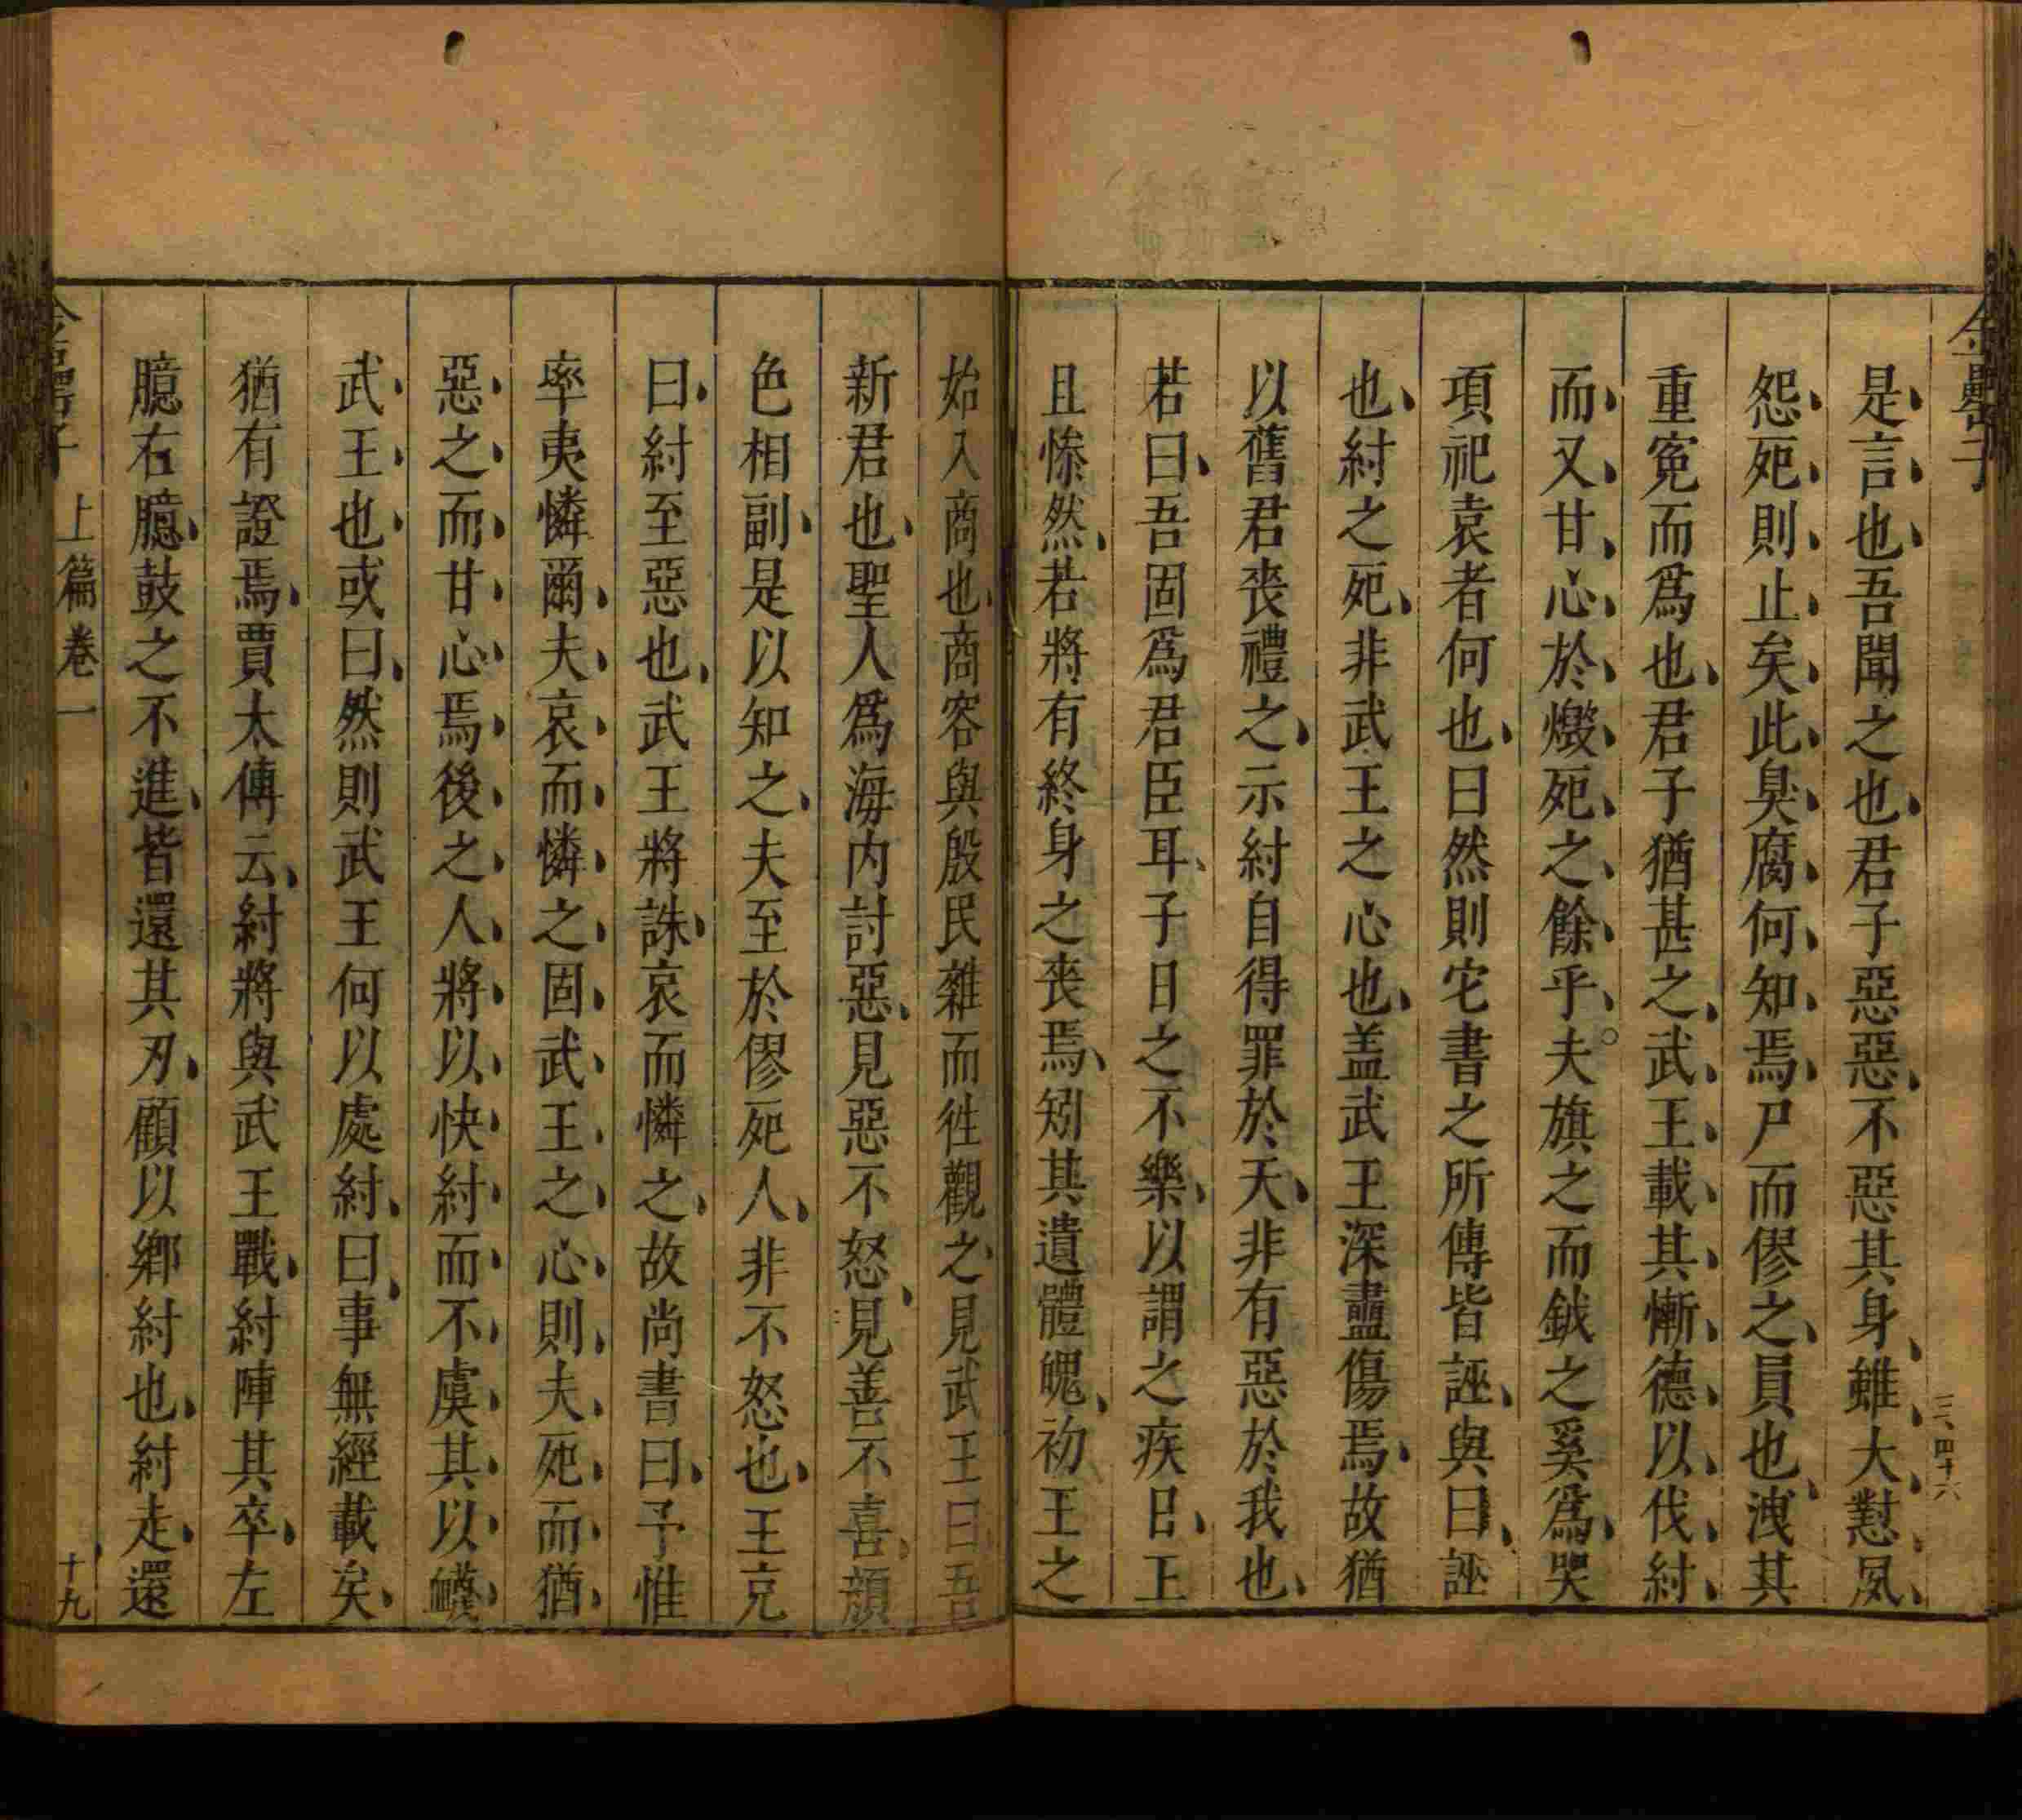 金罍子
三百四十六
是言也吾聞之也君子惡惡不惡其身雖大懟夙
怨死則止矣此臭腐何知焉尸而僇之員也洩其
重冤而爲也君子猶甚之武王載其慚德以伐紂
而又甘心於燬死之餘乎夫旗之而鉞之奚爲哭
項祀袁者何也曰然則宅書之所傳皆誣與曰誣
也紂之死非武王之心也盖武王深盡傷焉故猶
以舊君丧禮之示紂自得罪於天非有惡於我也
若曰吾固爲君臣耳子日之不樂以謂之疾日王
且慘然若將有終身之丧焉矧其遺體魄初王之
始入商也商容與殷民雜而徃觀之見武王曰吾
新君也聖人爲海内討惡見惡不怒見善不喜顔
色相副是以知之夫至於僇死人非不怒也王克
曰紂至惡也武王將誅哀而憐之故尚書曰予惟
率夷憐爾夫哀而憐之固武王之心則夫死而猶
惡之而甘心焉後之人將以快紂而不虞其以衊
武王也或曰然則武王何以處紂曰事無經載矣
猶有證焉賈太傅云紂將與武王戰紂陣其卒左
臆右臆鼓之不進皆還其刃顧以鄉紂也紂走還
金罍子
上篇卷一
十九